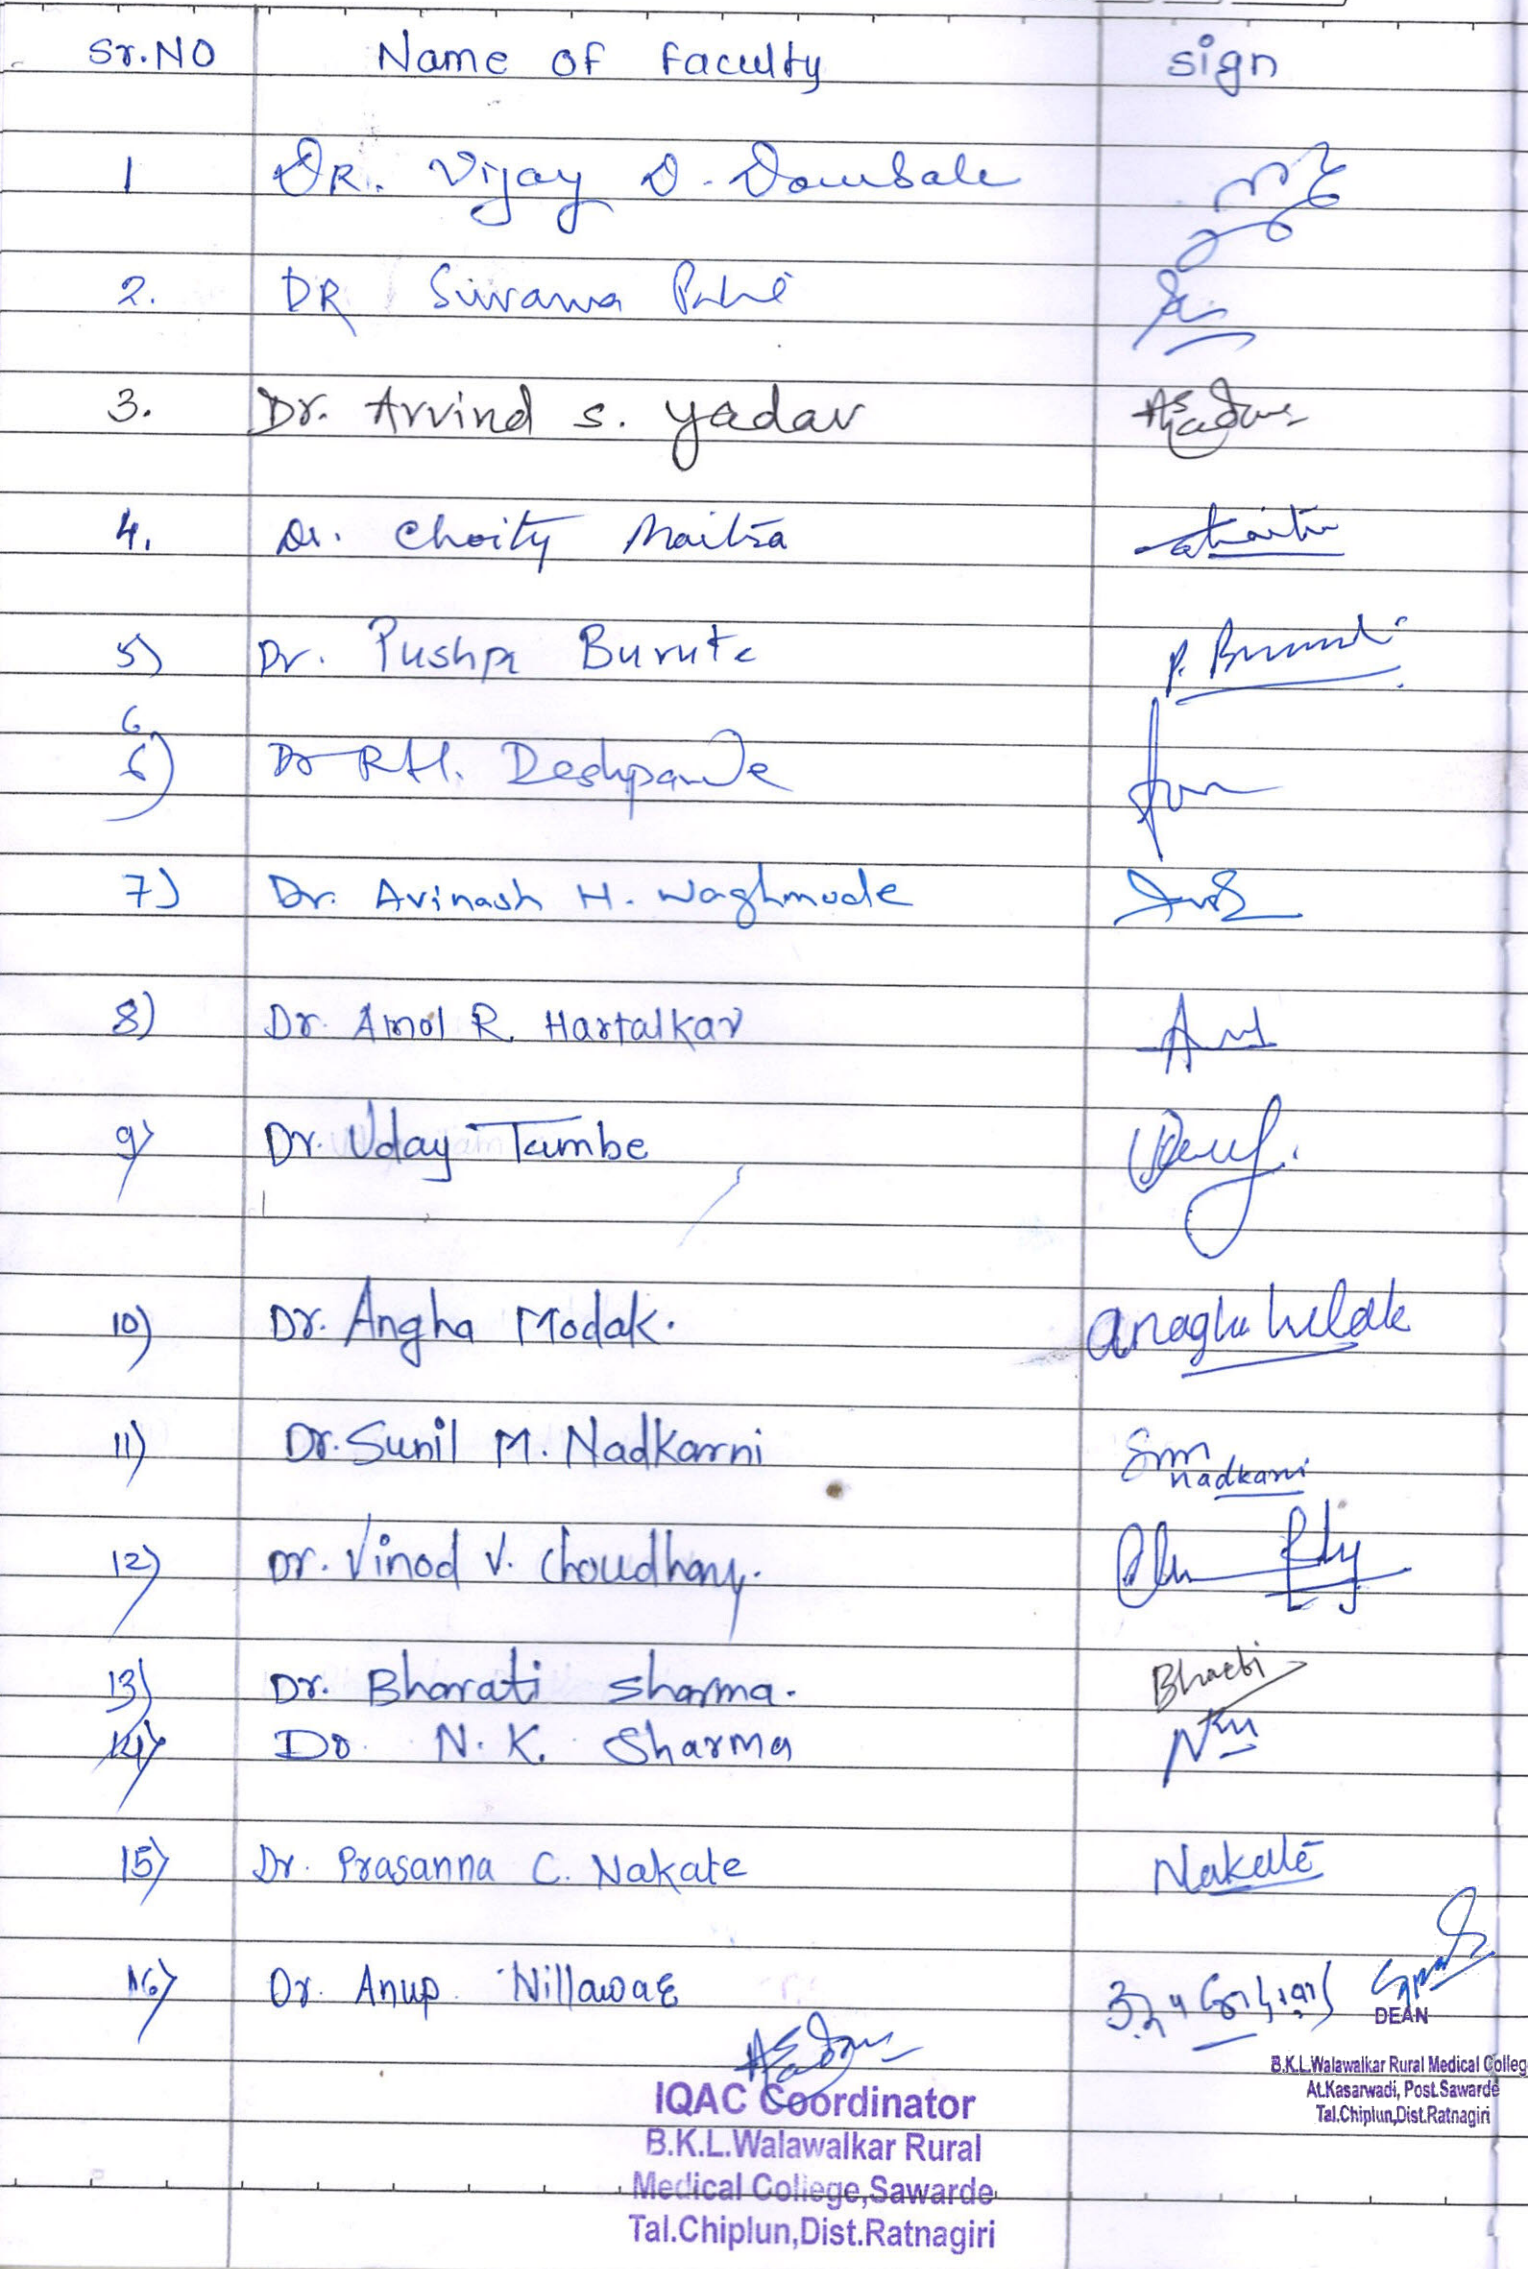 Sr.NO Name of faculty sign
1 DR. Vijay D. Dombale
2. DR Suvarna Patil
3. Dr. Arvind s. yadav
4. Dr. Choity Maitra
5) Dr. Pushpa Burute P.
6
6) Dr R.H. Deshpande
7) Dr. Avinash H. Waghmode
8) Dr. Amol R. Hartalkar
9) Dr. Uday Tambe
10) Dr. Angha Modak. anagha
11) Dr. Sunil M. Nadkarni Smm
nadkarni
12) Dr. Vinod V. Choudhary.
13) Dr. Bharati sharma.
14) Dr. N. K. Sharma
15) Dr. Prasanna C. Nakate Nakate
16) Dr. Anup Nillawar
DEAN
B.K.L.Walawalkar Rural Medical Colleg
At.Kasarwadi, Post.Sawarde
Tal.Chiplun,Dist.Ratnagiri
IQAC Coordinator
B.K.L.Walawalkar Rural
Medical College,Sawarde
Tal.Chiplun,Dist.Ratnagiri